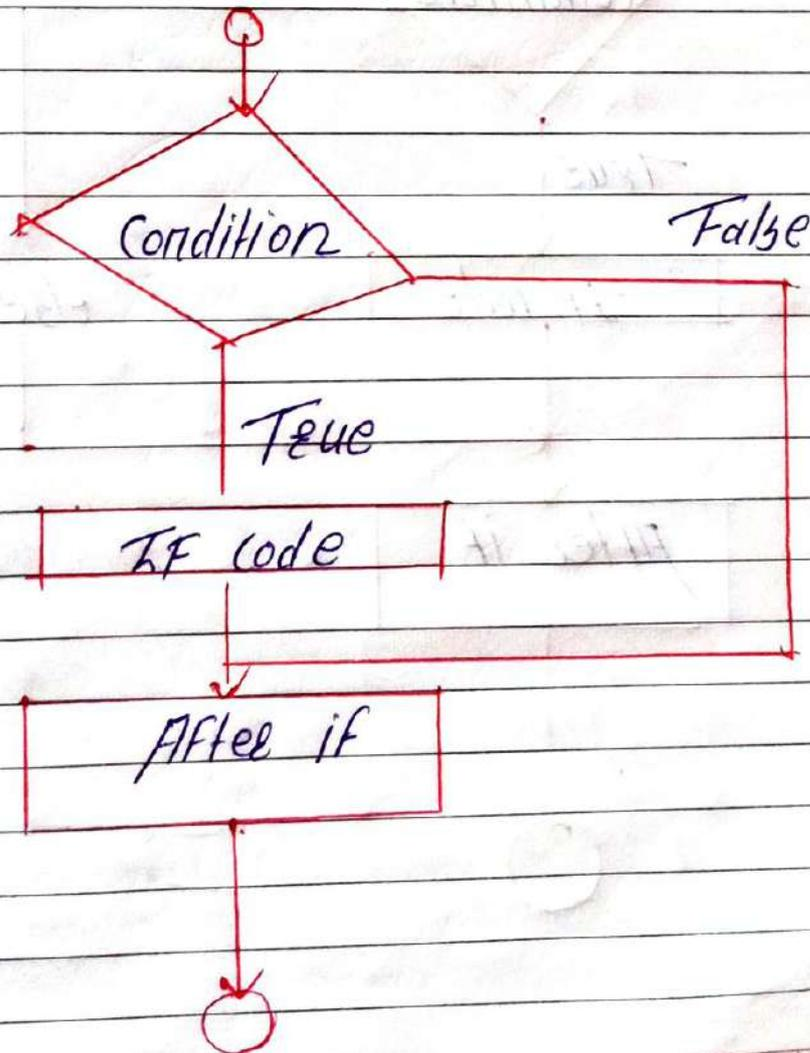 Condition
False
True
IF code
After if